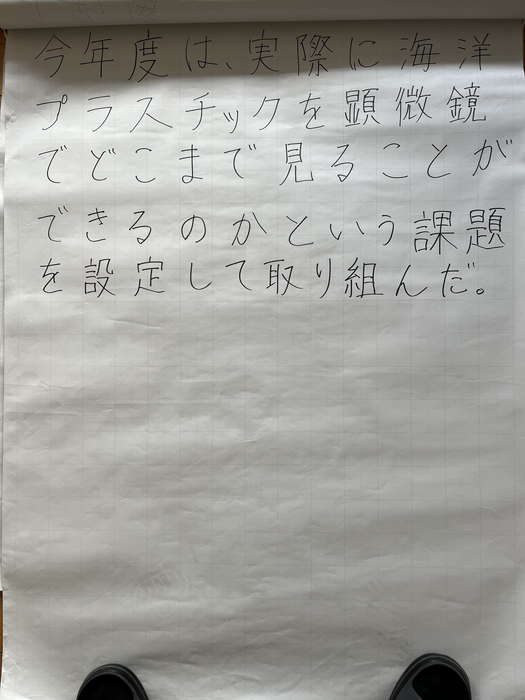 今年度は、実際に海洋
プラスチックを顕微鏡
でどこまで見ることが
できるのかという課題
を設定して取り組んだ。